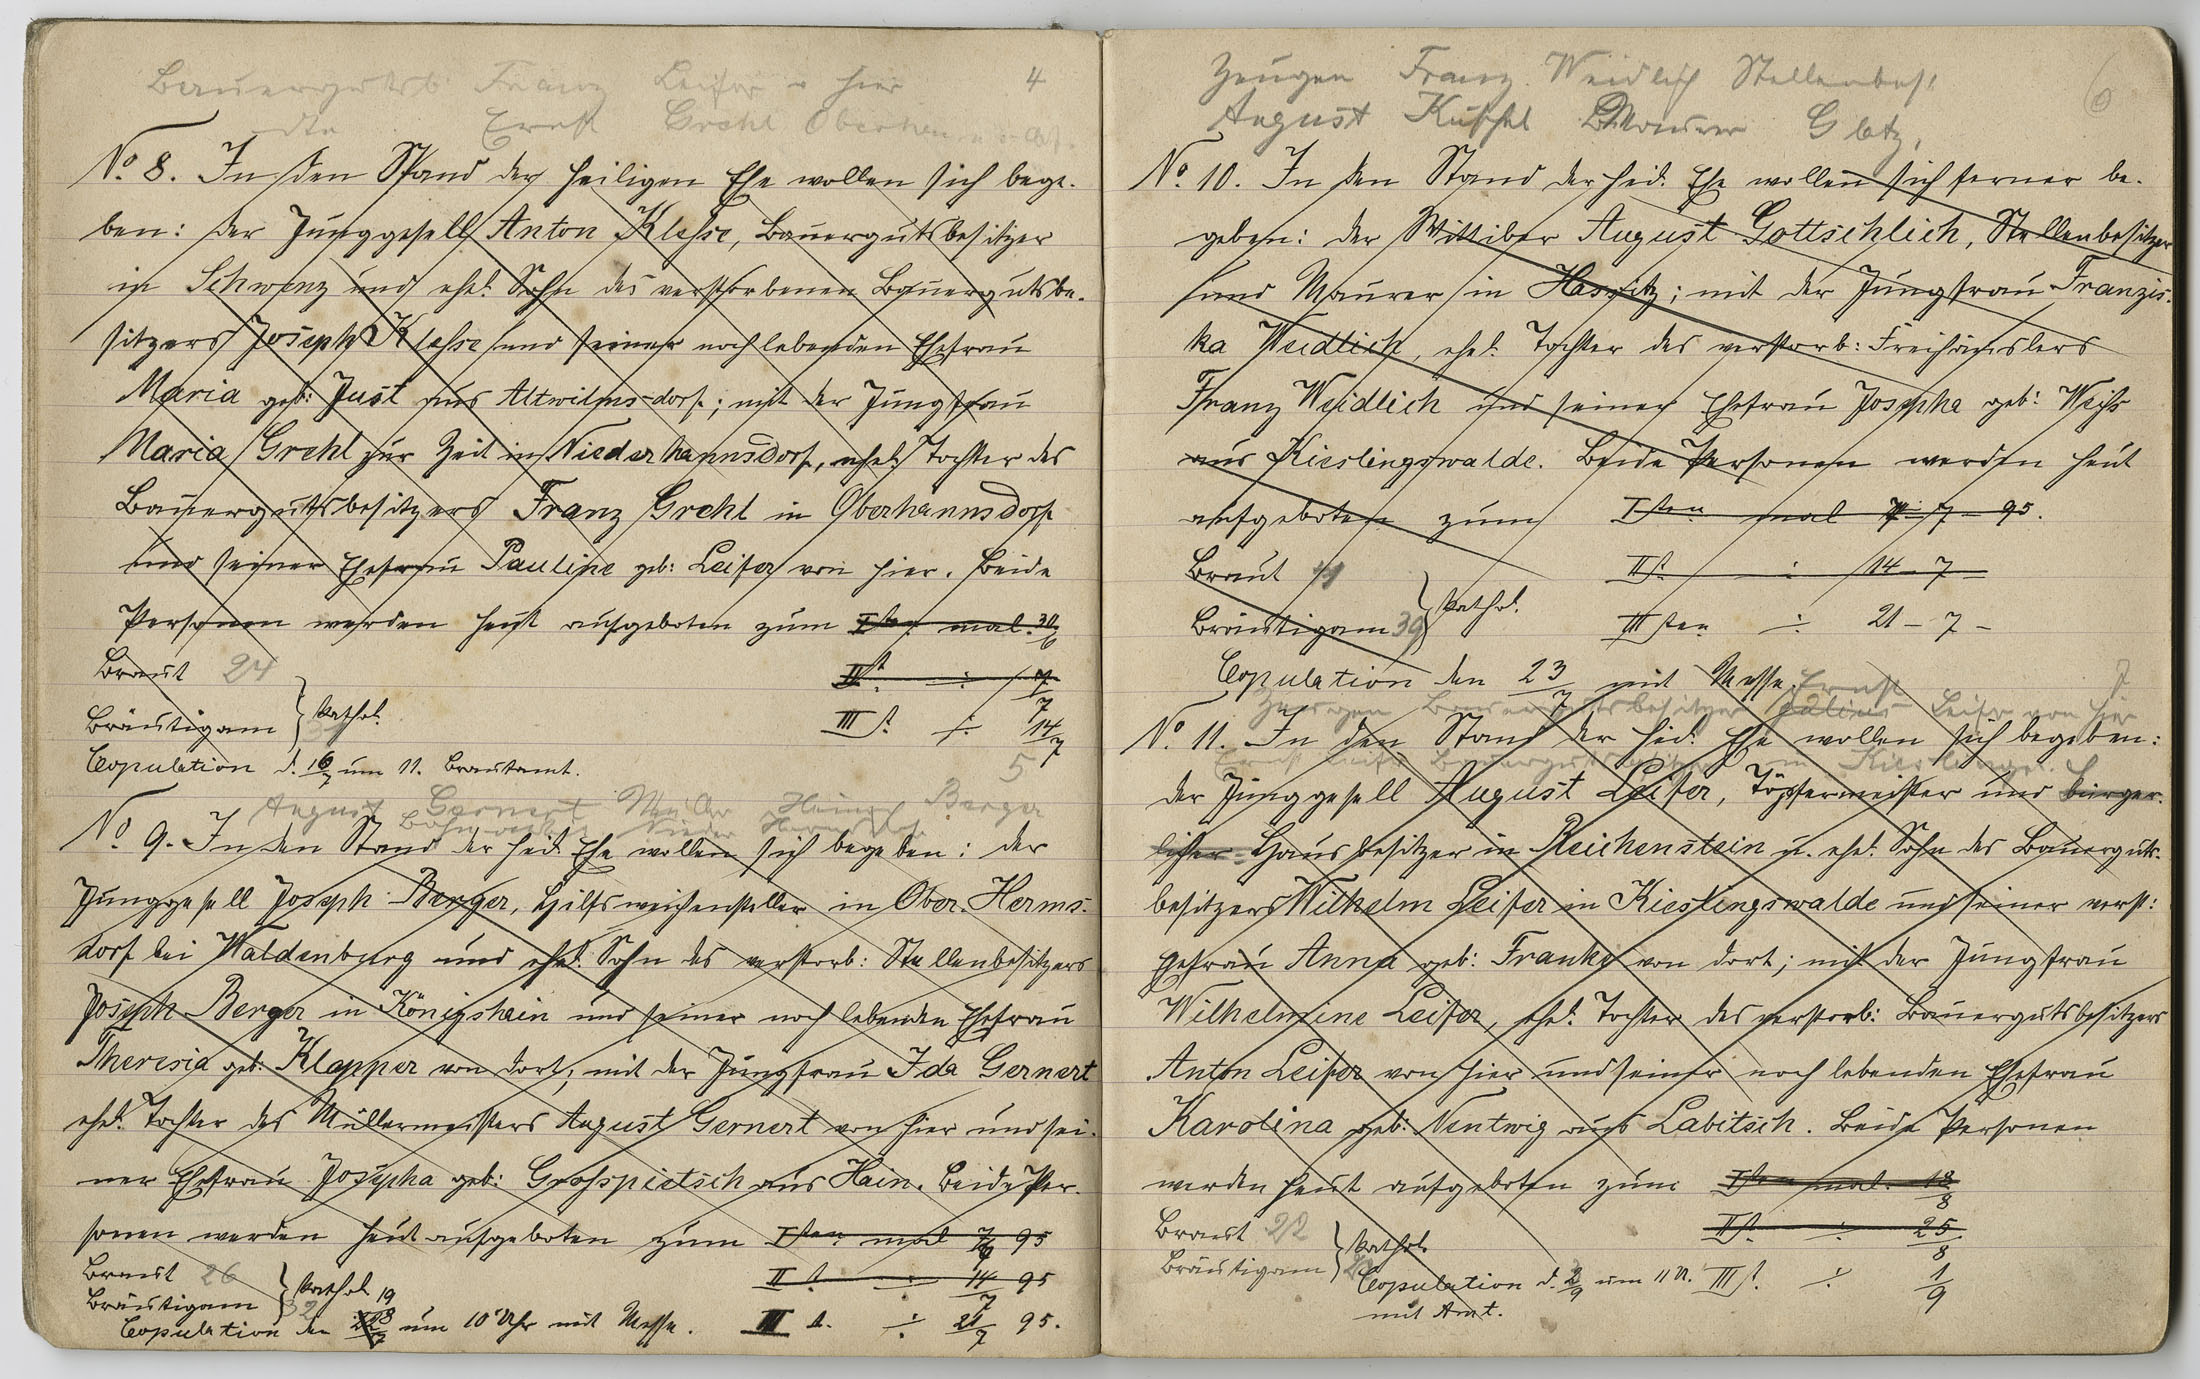 Bauergutsb. Franz Leifer v hier 4
dto Ernst Grehl
No. 8. In den Stand der heiligen Ehe wollen sich bege-
ben: der Junggesell Anton Klesse, Bauergutsbesitzer
in Schwenz und ehel. Sohn des verstorbenen Bauergutsbe-
sitzers Joseph Klesse und seiner noch lebenden Ehefrau
Maria geb: Just aus Altwilmsdorf; mit der Jungfrau
Maria Grehl zur Zeit in Niederhannsdorf, ehel. Tochter des
Bauergutsbesitzers Franz Grehl in Oberhannsdorf
und seiner Ehefrau Pauline geb: Leifer von hier. Beide
Personen werden heut aufgeboten zum Iten mal. 30/6
Braut 24 IIt. ÷ 7/7
Bräutigam } kathol. IIIt. ÷ 14/7
Copulation d. 16/7 um 11. Brautamt.
5
August Gernert Müller Heinrich Berger
Bahnwärter Nieder Hermsdorf
No. 9. In den Stand der heil. Ehe wollen sich begeben: der
Junggesell Joseph Berger, Hilfsweichensteller in Ober-Herms-
dorf bei Waldenburg und ehel. Sohn des verstorb: Stellenbesitzers
Joseph Berger in Königshain und seiner noch lebenden Ehefrau
Theresia geb: Klapper von dort; mit der Jungfrau Ida Gernert
ehel. Tochter des Müllermeisters August Gernert von hier und sei-
ner Ehefrau Josepha geb: Grosspietsch aus Hain. Beide Per-
sonen werden heut aufgeboten zum Iten mal 7/7 95
Braut 26 IIt. ÷ 14/7 95
Bräutigam 32 } kathol. 19
Copulation den 23/7 um 10 Uhr mit Messe. III t. ÷ 21/7 95.
Zeugen Franz Weidlich Stellenbes. 6
August Kuschel Maurer Glatz,
No. 10. In den Stand der heil. Ehe wollen sich ferner be-
geben: der Wittiber August Gottschlich, Stellenbesitzer
und Maurer in Hassitz; mit der Jungfrau Franzis-
ka Weidlich, ehel. Tochter des verstorb: Freihäuslers
Franz Weidlich und seiner Ehefrau Josepha geb: Weiss
aus Kieslingswalde. Beide Personen werden heut
aufgeboten zum Iten mal 7-95.
Braut 41 IIt. ÷ 14-7-
Bräutigam 39 } kathol. IIIten ÷ 21-7-
Copulation den 23/7 mit Messe. 7
Zeugen Bauergutsbesitzer Julius Ernst Leifer von hier
Ernst Leifer Bauergutsbesitzer in Kieslingsw.
No. 11. In den Stand der heil. Ehe wollen sich begeben:
der Junggesell August Leifer, Töpfermeister und bürger-
licher Hausbesitzer in Reichenstein u. ehel. Sohn des Bauerguts-
besitzers Wilhelm Leifer in Kieslingswalde und seiner verst:
Ehefrau Anna geb: Franke von dort; mit der Jungfrau
Wilhelmine Leifer, ehel. Tochter des verstorb: Bauergutsbesitzers
Anton Leifer von hier und seiner noch lebenden Ehefrau
Karolina geb: Nentwig aus Labitsch. Beide Personen
werden heut aufgeboten zum Iten mal. 18/8
Braut 22 IIt. ÷ 25/8
Bräutigam } kathol.
Copulation d. 2/9 um 11 U. IIIt. ÷ 1/9
mit Amt.